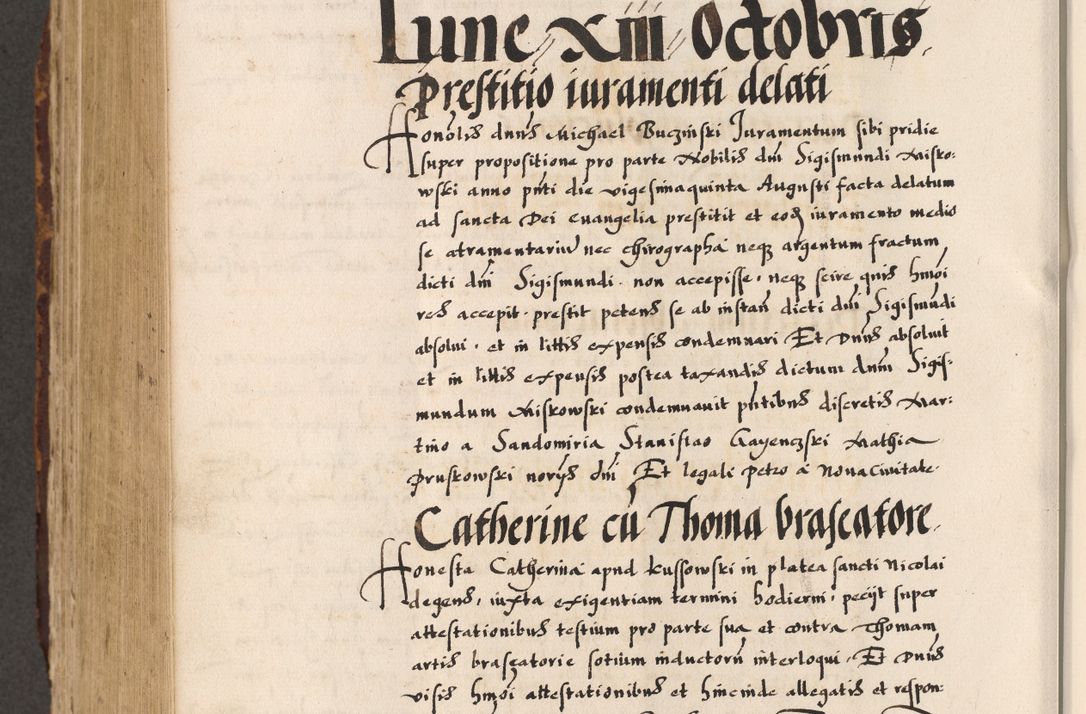 Lune xiii Octobris
Prestitio iuramenti delati
Honolis dnus Michael Buczinski Juramentum sibi pridie
super propositione pro parte Nobilis dni Sigismundi Misko:
wski anno pnti die vigesimaquinta Augusti facta delatum
ad sancta Dei euangelia prestitit et eodem iuramento medio
se atramentariu nec chirographa neqz argentum fractum
dicti dni Sigismundi non accepisse, neqz scire quis hmoi
res accepit. prestit petens se ab instan dicti dni Sigismudi
absolui, et in littis expensis condemnari Et Dnus absoluit
et in littis expensis postea taxandis dictum dnm Sigis:
mundum Miskowski condemnauit pntibus discretis Mar:
tino a Sandomiria Stanislao Gayenczski Mathia
Pruskowski noryis dni Et legali Petro a Noua Ciuitate.
Catherine cu Thoma brascatore.
Honesta Catherina apud Kussowski in platea sancti Nicolai
degens, iuxta exigentiam termini hodierni, pecijt super
attestationibus testium pro parte sua et contra Thomam
artis brasczatorie sotium inductoru interloqui. Et Dnus
visis hmoi attestationibus et hincinde allegatis et respon: